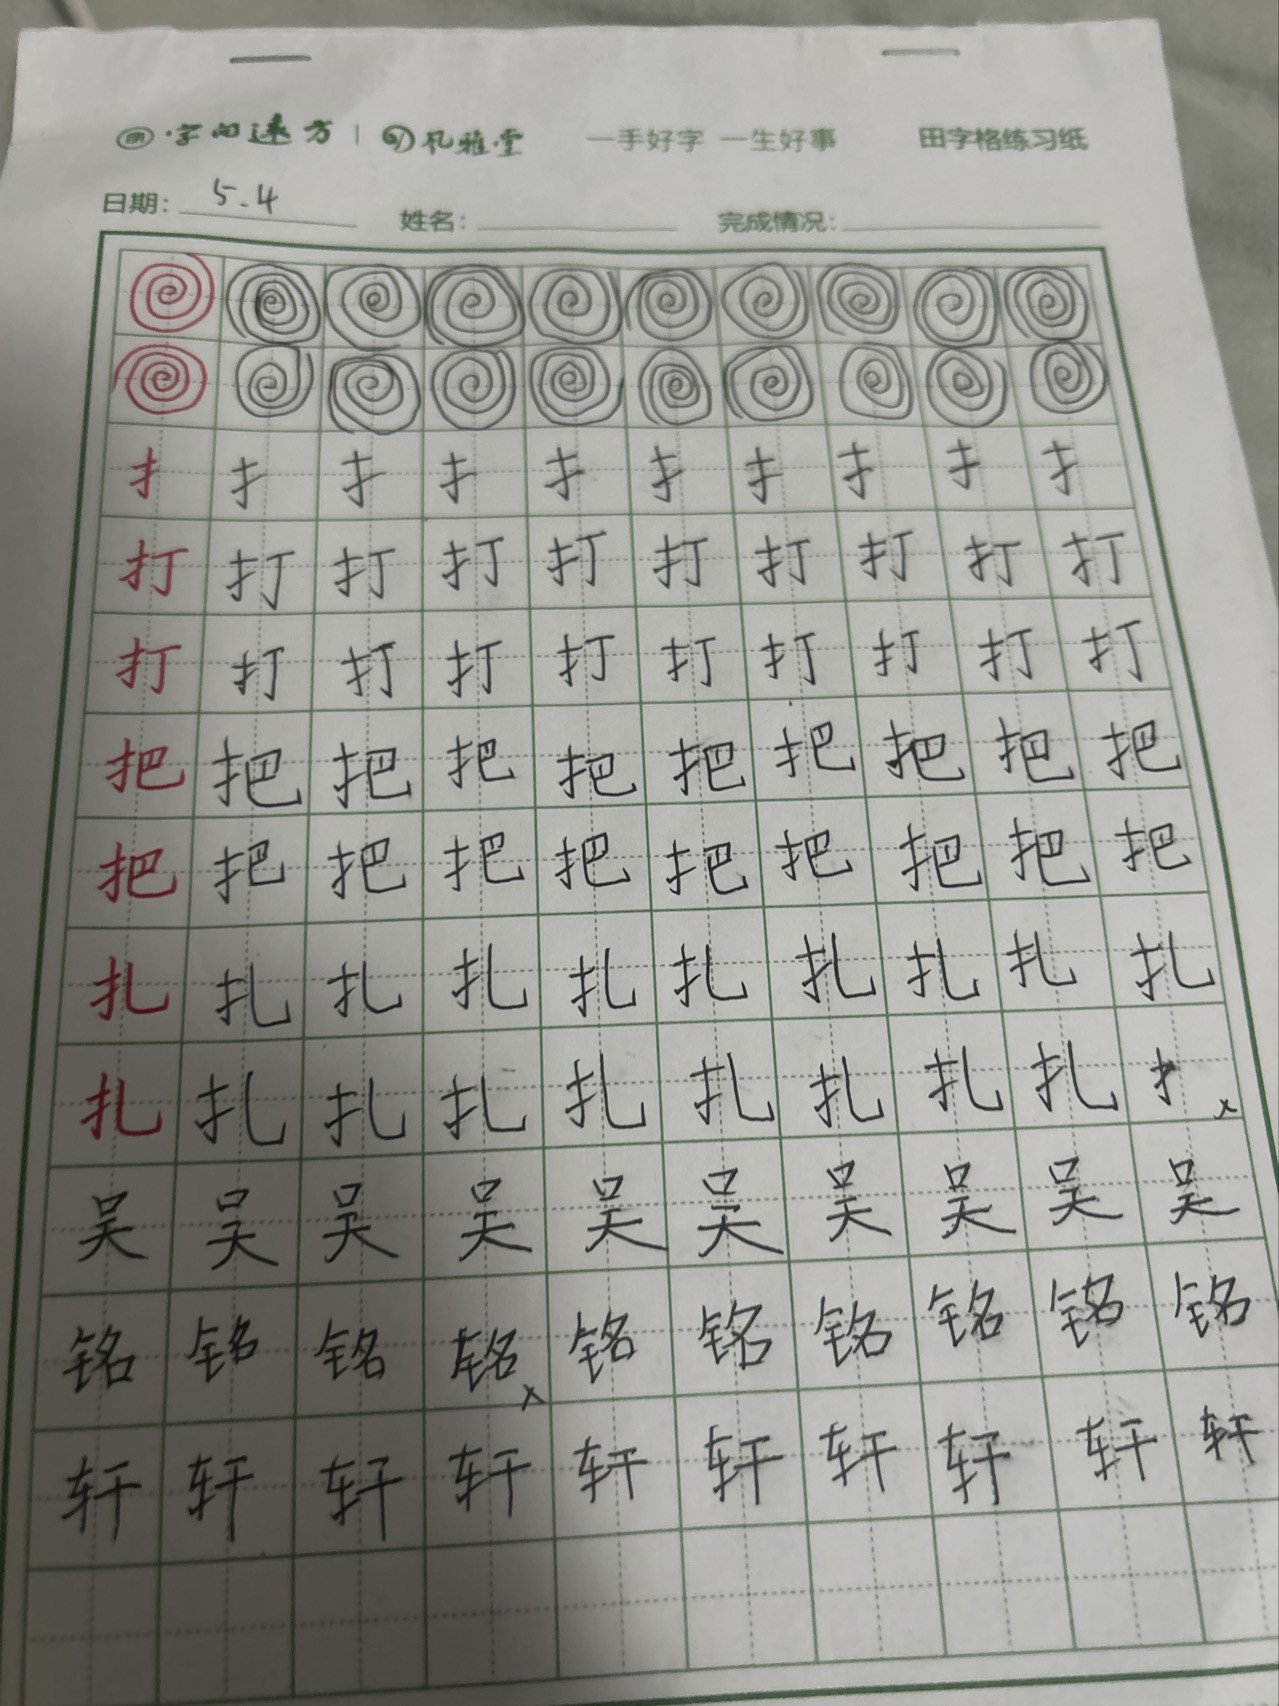 字向速方 | 风雅堂 一手好字 一生好事 田字格练习纸
日期: 5.4 姓名: 完成情况:
扌 扌 扌 扌 扌 扌 扌 扌 扌 扌
打 打 打 打 打 打 打 打 打 打
打 打 打 打 打 打 打 打 打 打
把 把 把 把 把 把 把 把 把 把
把 把 把 把 把 把 把 把 把 把
扎 扎 扎 扎 扎 扎 扎 扎 扎 扎
扎 扎 扎 扎 扎 扎 扎 扎 扎 扌 x
吴 吴 吴 吴 吴 吴 吴 吴 吴 吴
铭 铭 铭 铭 x 铭 铭 铭 铭 铭 铭
轩 轩 轩 轩 轩 轩 轩 轩 轩 轩